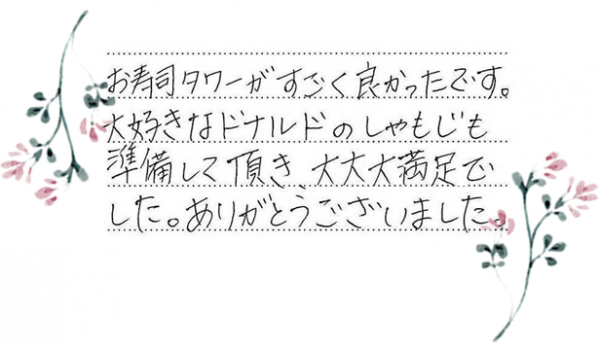 お寿司タワーがすごく良かったです。
大好きなドナルドのしゃもじも
準備して頂き、大大大満足で
した。ありがとうございました。